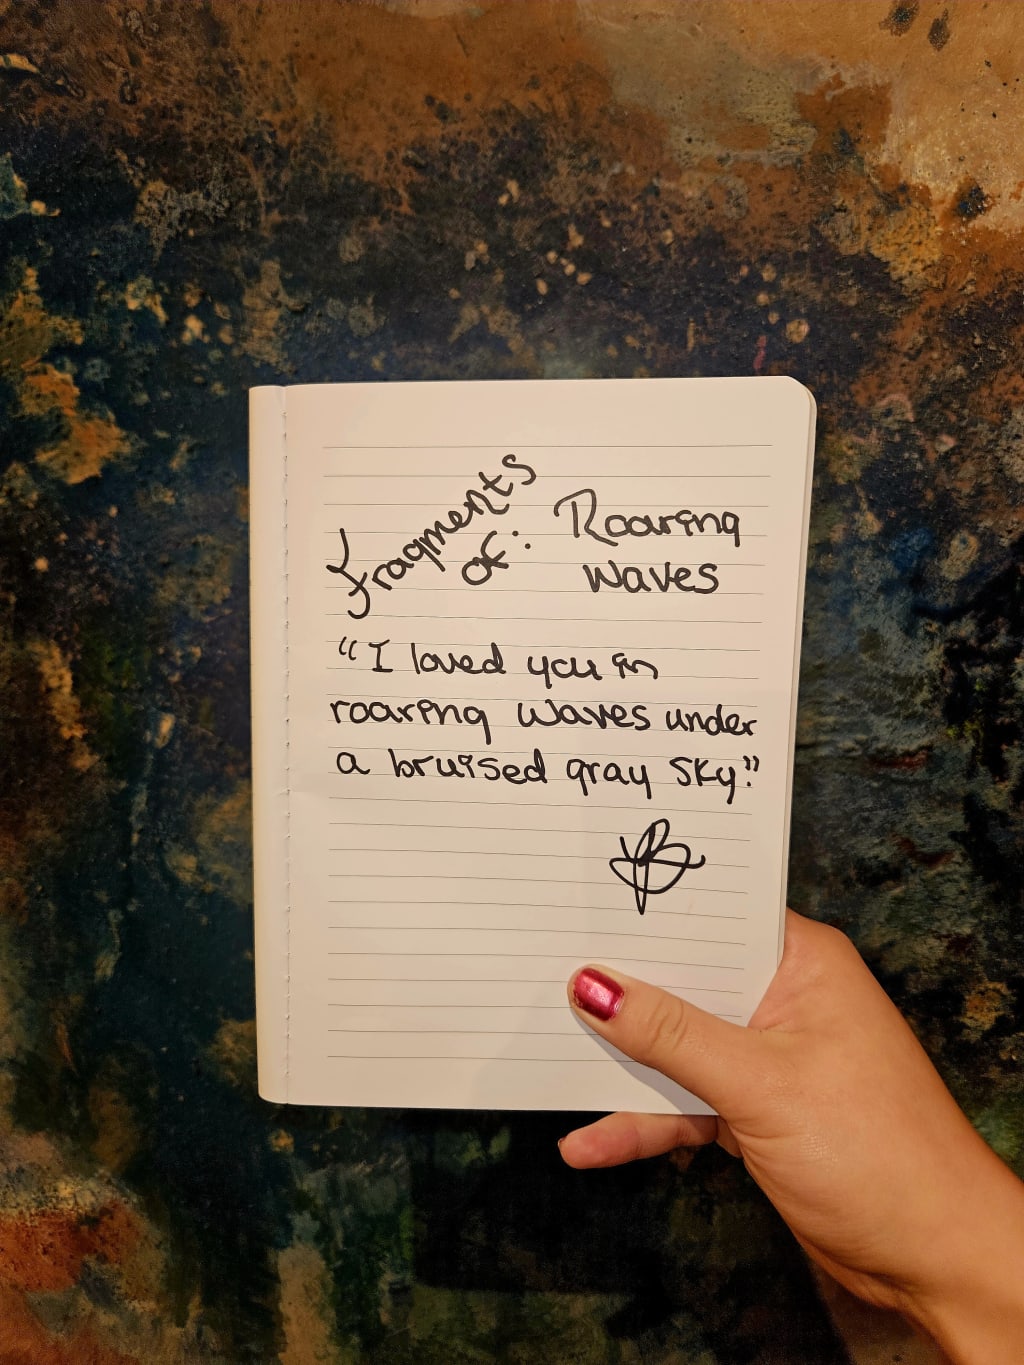 fragments
of:
Roaring
waves
“I loved you in
roaring waves under
a bruised gray sky.”